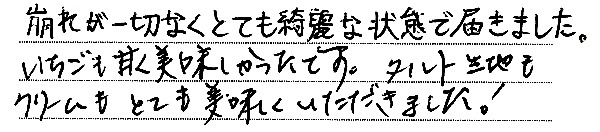 崩れが一切なくとても綺麗な状態で届きました。
いちごも甘く美味しかったです。タルト生地も
クリームもとても美味しくいただきました！